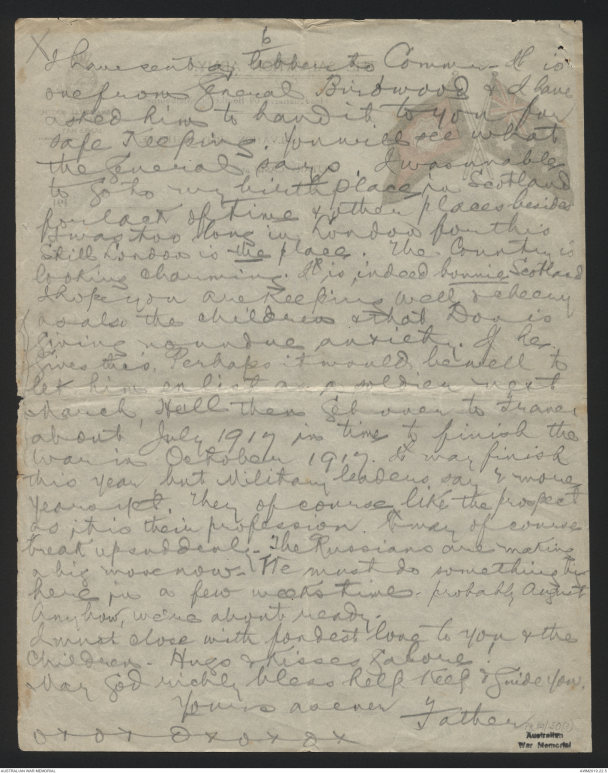 6
I have sent a letter to Comm - It is
one from General Birdwood & I have
asked him to hand it to you for
safe Keeping. You will see what
the General says. I was unable
to go to my birth place in Scotland
for lack of time & other places besides
I was too long in London for this
Still London is the place. The Country is
looking charming. It is indeed bonnie Scotland
I hope you are keeping well & cheery
as also the children & that Don is
giving no undue anxiety. If he
gives this, Perhaps it would be well to
let him enlist as a soldier next
March, He'll then get over to France
about July 1917 in time to finish the
War in October 1917. It may finish
this year but Military leaders say 2 more
years yet. They of course like the prospect
as it is their profession. It may of course
break up suddenly - The Russians are making
a big move now - We must do something
here in a few weeks time - probably August
Anyhow, we're about ready.
I must close with fondest love to you & the
Children - Hugs & Kisses galore.
May God richly bless help keep & guide you.
Yours as ever
Father
o x o x o x o x o x
Australian
War Memorial
AUSTRALIAN WAR MEMORIAL